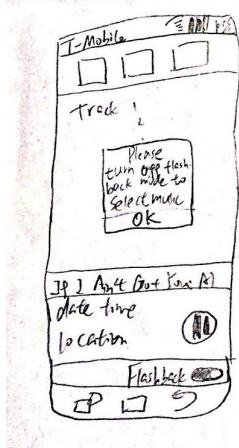 T-Mobile
Track 1
2
Please
turn off flash
back mode to
select music
OK
If I Ain't Got You
date time
location
Flashback